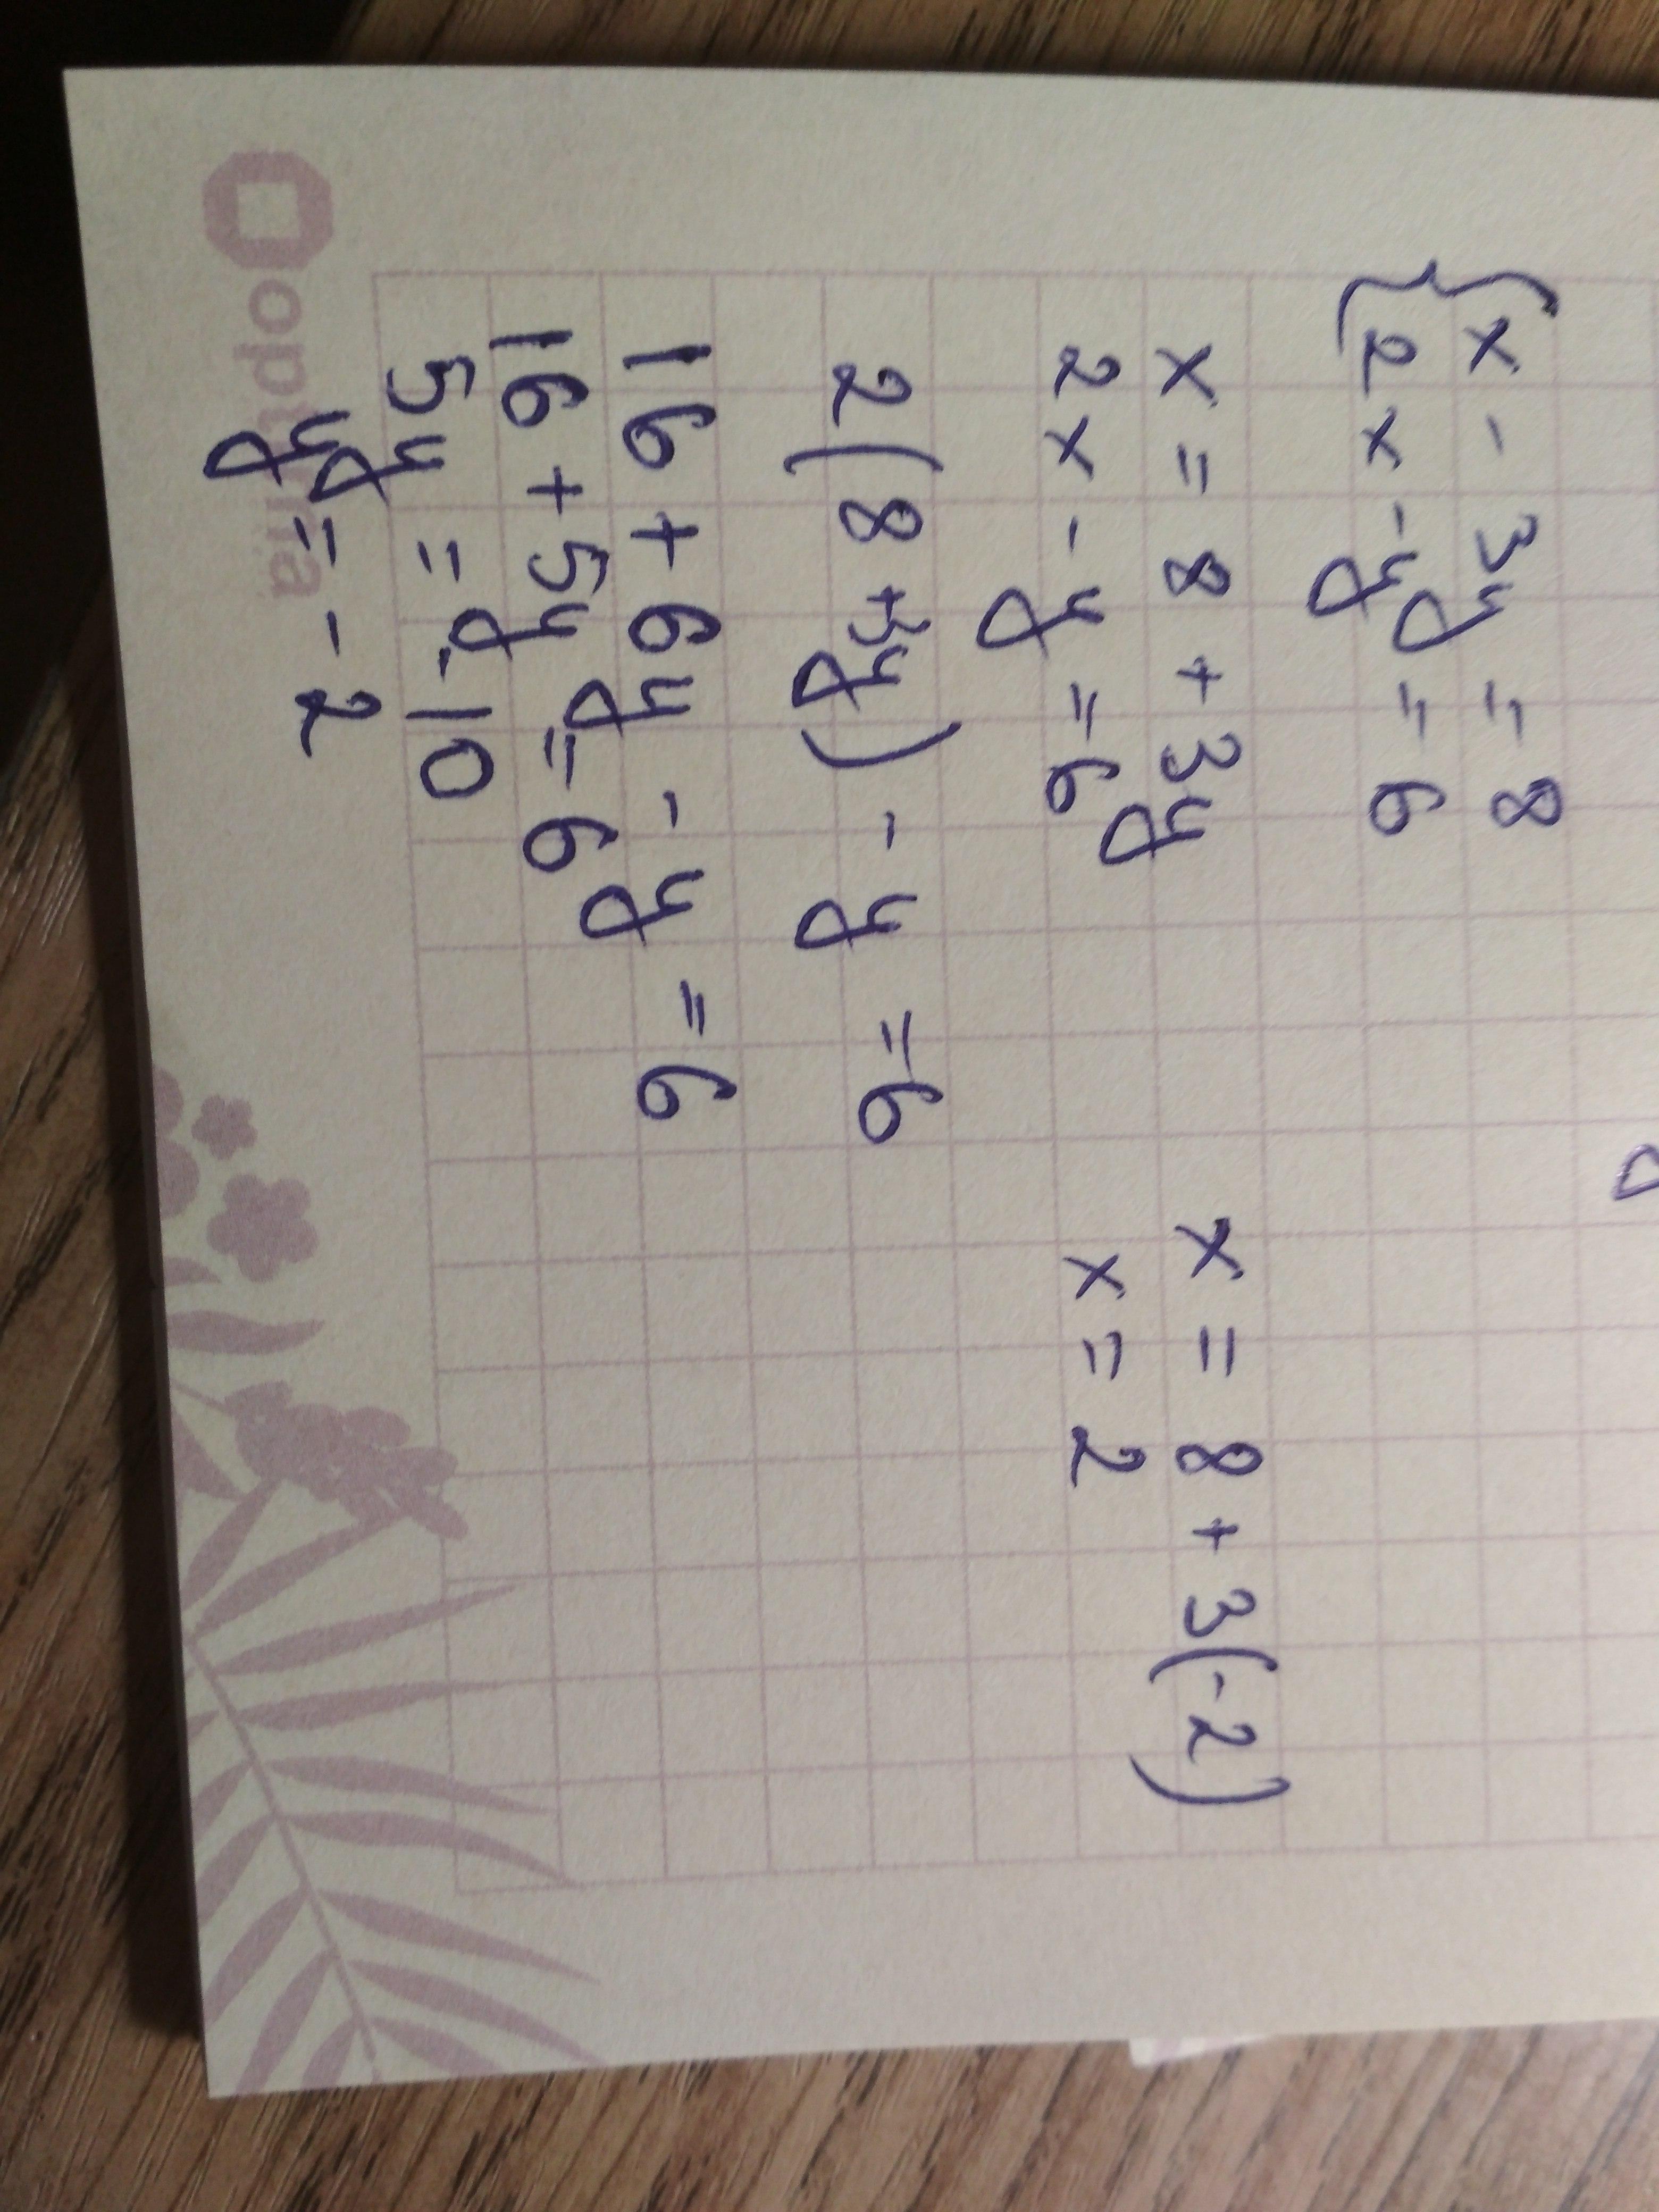 x - 3y = 8
2x - y = 6
x = 8 + 3y
2x - y = 6
2(8 + 3y) - y = 6
16 + 6y - y = 6
16 + 5y = 6
5y = -10
y = -2
x = 8 + 3(-2)
x = 2